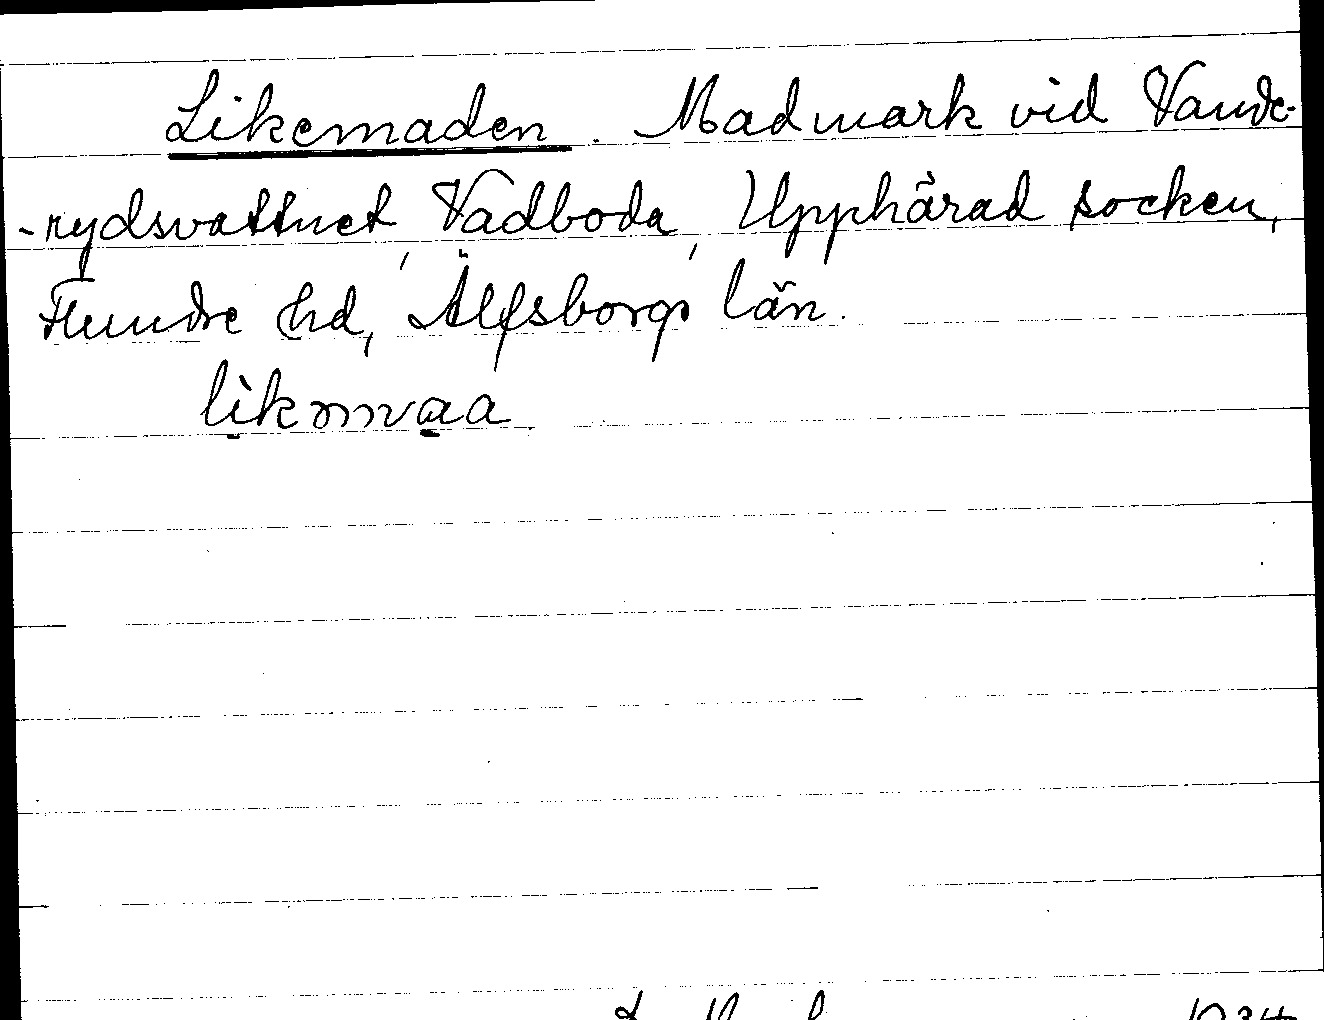 Likemaden. Madmark vid Vande-
-rydsvattnet, Vadboda, Upphärad socken,
Flundre hd, Älfsborgs län.